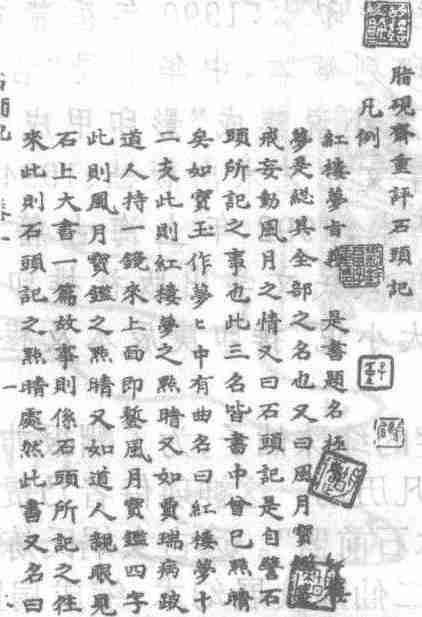 脂硯齋重評石頭記
凡例
紅樓夢旨 是書題名極
夢是總其全部之名也又曰風月寶
戒妄動風月之情又曰石頭記是自譬石
頭所記之事也此三名皆書中曾已㸃睛
矣如寶玉作夢〻中有曲名曰紅樓夢十
二支此則紅樓夢之㸃睛又如賈瑞病跛
道人持一鏡來上面即鏨風月寶鑑四字
此則風月寶鑑之㸃睛又如道人親眼見
石上大書一篇故事則係石頭所記之往
來此則石頭記之㸃睛處然此書又名曰